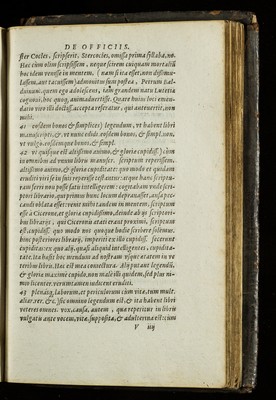 DE OFFICIIS.
ster Cocles, scripserit, Stercocles, omissa prima syllaba, no.
Hoc cum olim scripsissem, neque scirem cuiquam mortaliũ
hoc idem venisse in mentem, (nam si ita esset, non dissimu-
lassem, aut tacuissem) admonitus sum postea, Petrum
duinum, quem ego adolescens, tam grandem natu Lutetiæ
cognoui, hoc quoq, animaduertisse. Quare huius loci emen-
data viro illi doctiss. accepta referatur, qui antea uertit, non
mihi.
41 eosdem bonos & simplices) legendum, vt habent libri
manuscripti, & vt nunc edidi: eosdem bonos, & simpl. non,
vt vulgo, eosdem que bonos, & simpl.
42 vt quisque est altissimo animo, & gloriæ cupidiss.) cùm
in omnibus ad vnum libris manuscr. scriptum reperissem,
altissimo animo, & gloria cupiditate: quo modo et quidam
eruditi viri se in suis reperisse testantur: atque hanc scriptu-
ram ferri non posse satis intellegerem: cogitabam vnde scri-
ptores librarij, quo primùm hunc locum deprauassent, ansa pec-
candi oblata esset: venit mihi tandem in mentem, scriptum
esse à Cicerone, et gloria cupidissimo, deinde ab ijs scriptori-
bus librarijs, qui Ciceronis ætati erant proximi, scriptum
est, cupidiss. quo modo nos quoque hodie scribere solemus:
hinc posteriores librarij, imperiti ex illo cupidiss. fecerunt
cupiditate: quæ alij, quasi aliquid intelligentes, cupidita-
tate. ita hæsit hoc mendum ad nostram vsque ætatem in ve
teribus libris. Hæc est mea coniectura. Alij putant legendũ,
& gloriæ maxime cupido, non malè illi quidem, sed plus ni-
mio licenter. verùm tamen iudicent eruditi.
43 plenásq, laborum, et periculorum cùm vitæ, tum mult.
aliar. rer. & c.) sic omnino legendum est, & ita habent libri
veteres omnes. vox, causa, autem, quæ reperitur in libris
vulgatis ante vocem, vitæ, supposita, & adulterina est: cùm
V iiij